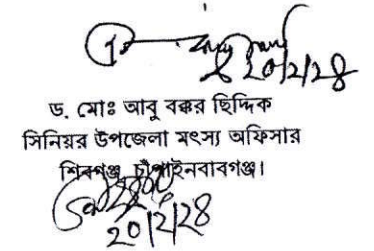 ২০/২/২৪
ড. মোঃ আবু বক্কর ছিদ্দিক
সিনিয়র উপজেলা মৎস্য অফিসার
শিবগঞ্জ, চাঁপাইনবাবগঞ্জ।
২০/২/২৪